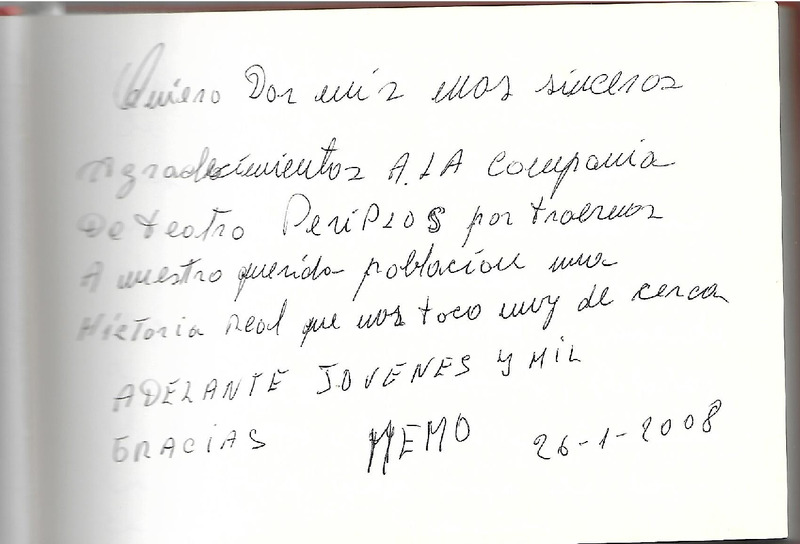 Quiero Dar miz mas sinceros
Agradecimientos A. LA Compania
De teatro PeriPLOS por traernos
A nuestra querida poblacion una
Historia Real que nos toco muy de cerca
ADELANTE JOVENES Y MIL
GRACIAS MEMO 26-1-2008